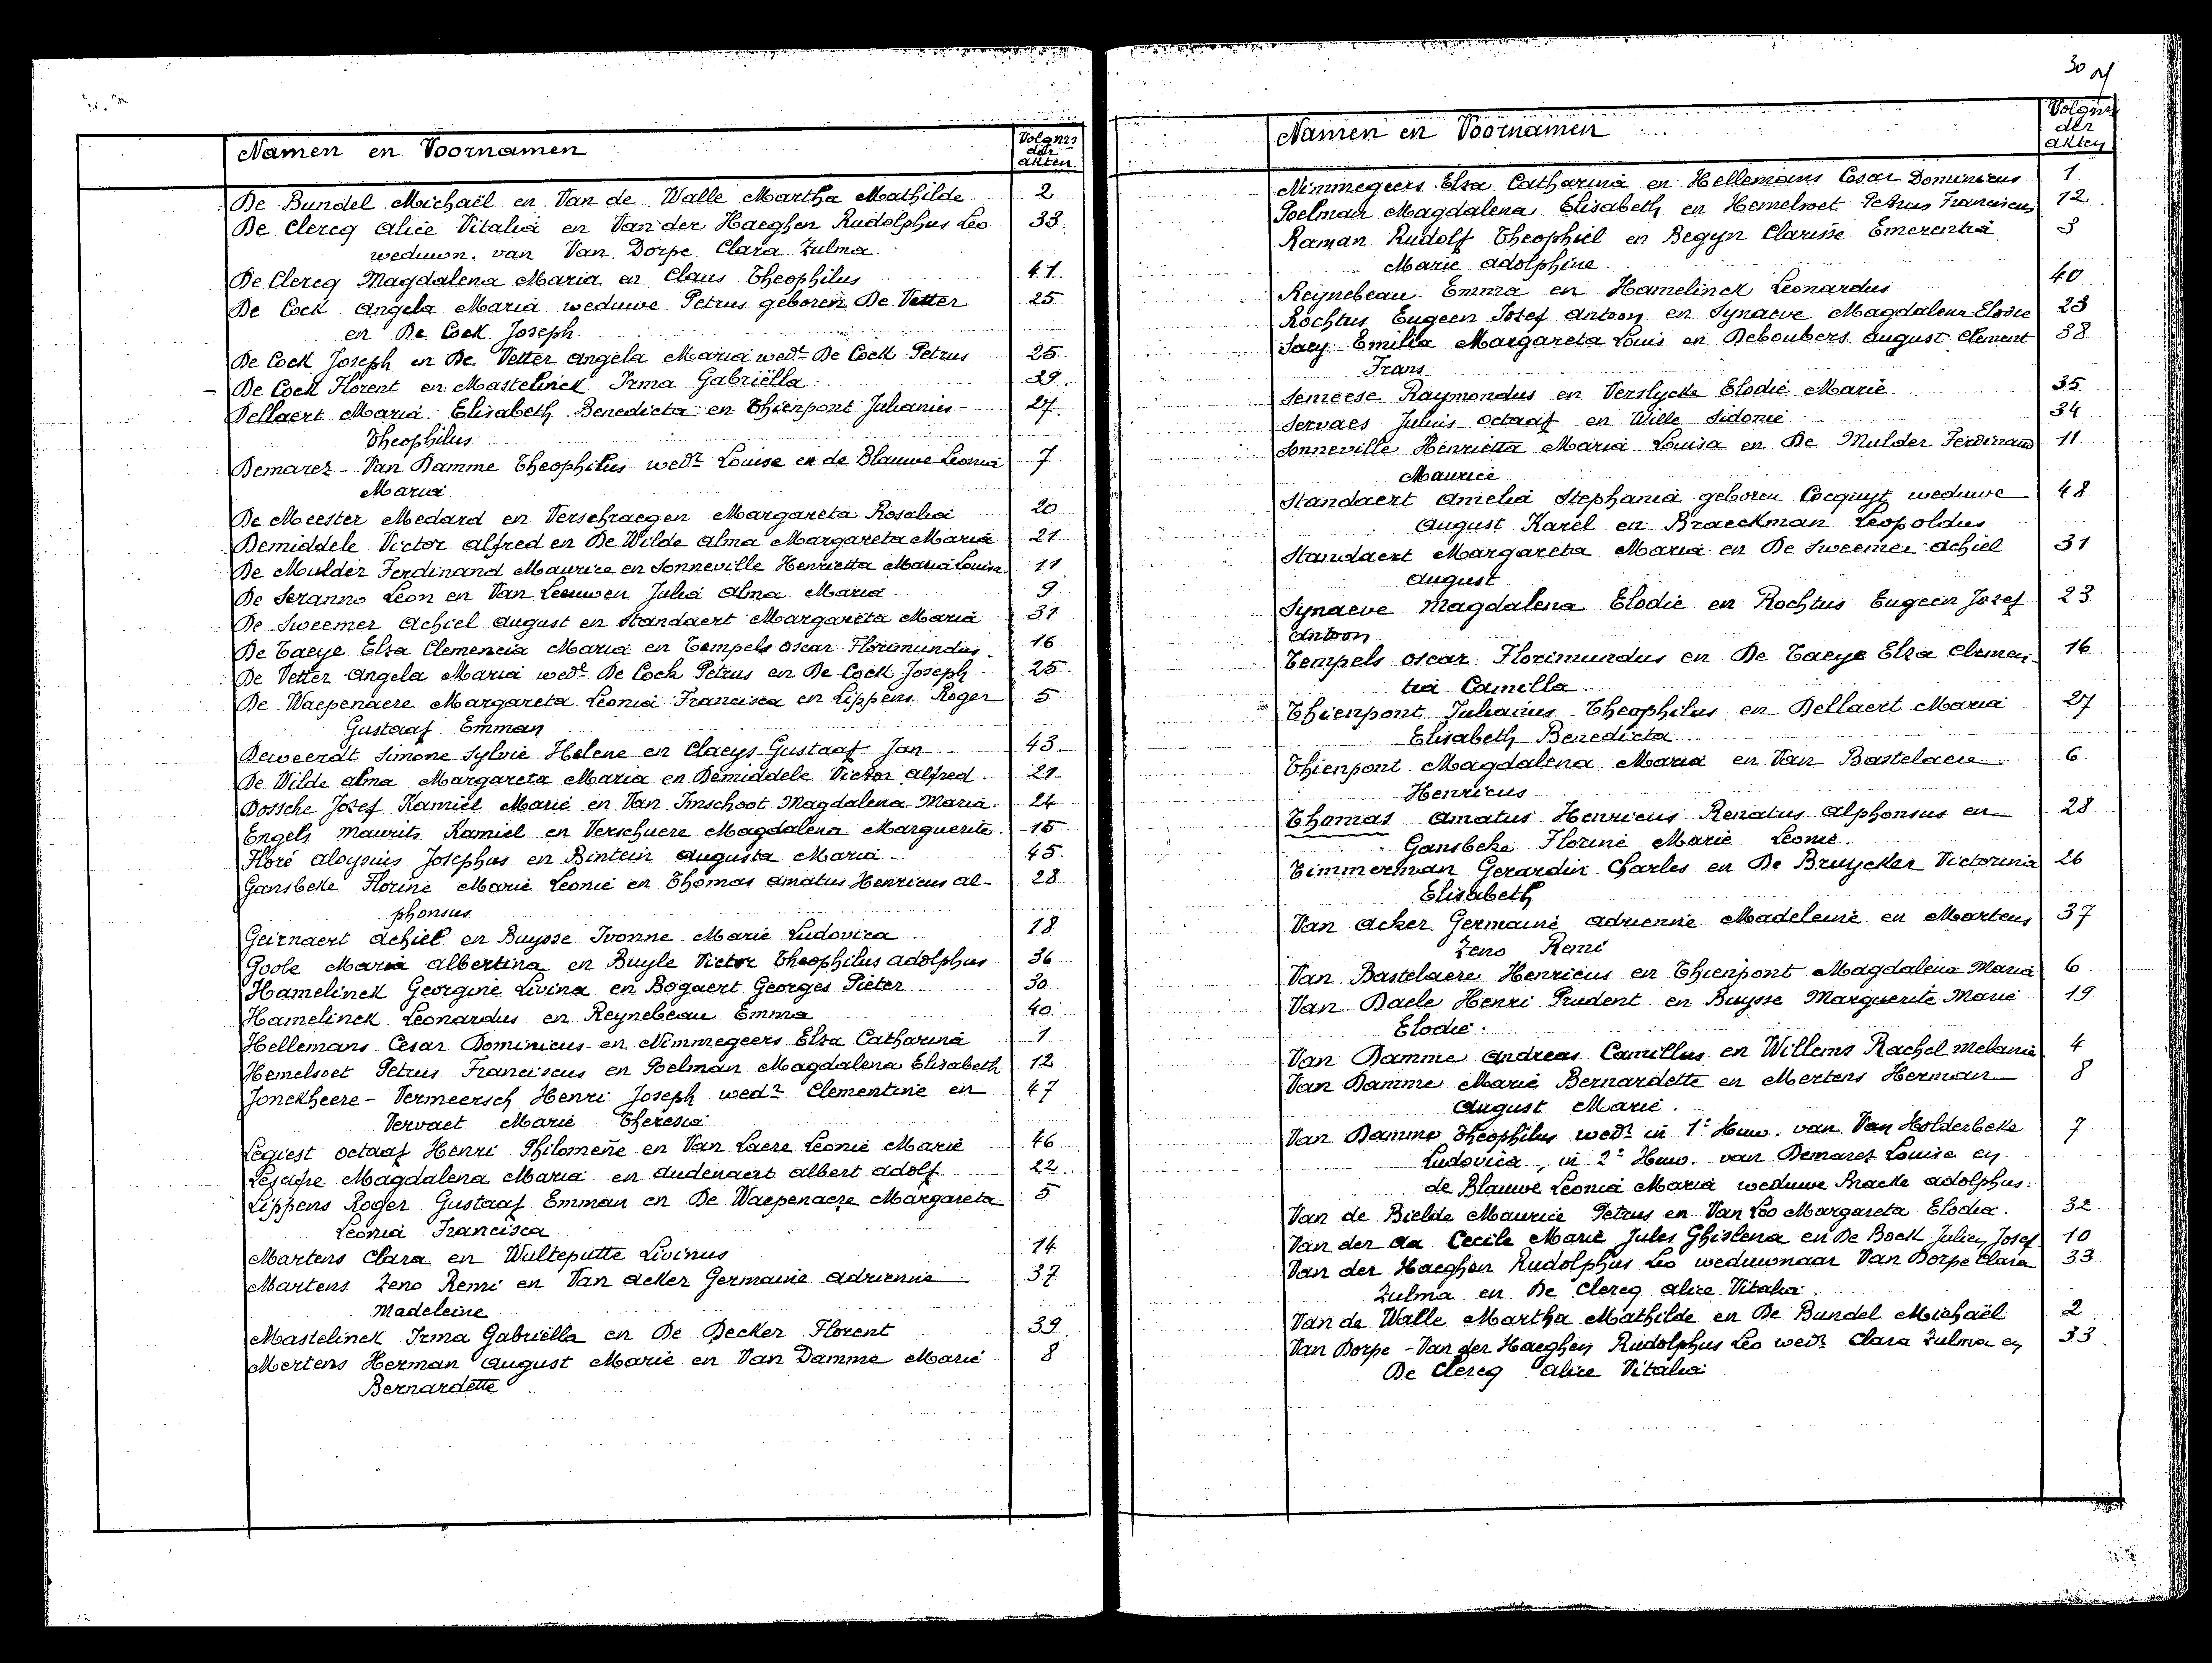 Namen en Voornamen
Volgnrs
der
akten.
De Bundel Michaël en Van de Walle Martha Mathilde 2
De Clercq Alice Vitalia en Van der Haeghen Rudolphus Leo 33.
weduwn. van Van Dorpe Clara Zulma.
De Clercq Magdalena Maria en Claus Theophilus 41
De Cock Angela Maria weduwe Petrus geboren De Vetter 25
en De Cock Joseph
De Cock Joseph en De Vetter Angela Maria wede De Cock Petrus 25
De Cock Florent en Mastelinck Irma Gabriëlla 39.
Dellaert Maria Elisabeth Benedicta en Thienpont Julianus 27
Theophilus
Demarez - Van Damme Theophilus wedr Louise en de Blauwe Leonia 7
Maria
De Meester Medard en Verschraegen Margareta Rosalia 20
Demiddele Victor Alfred en De Wilde Alma Margareta Maria 21
De Mulder Ferdinand Maurice en Sonneville Henrietta Maria Louisa 11
De Seranno Leon en Van Leeuwen Julia Alma Maria 9
De Sweemer Achiel August en Standaert Margareta Maria 31
De Taeye Elza Clemencia Maria en Tempels Oscar Florimundus. 16
De Vetter Angela Maria wede De Cock Petrus en De Cock Joseph 25
De Waepenaere Margareta Leonia Francisca en Lippens Roger 5
Gustaaf Emman
Deweerdt Simone Sylvie Helene en Claeys Gustaaf Jan 43.
De Wilde Alma Margareta Maria en Demiddele Victor Alfred 21
Dossche Jozef Kamiel Marie en Van Imschoot Magdalena Maria. 24
Engels Maurits Kamiel en Verschuere Magdalena Marguerite. 15
Floré Aloysius Josephus en Bintein Augusta Maria 45
Gansbeke Florine Marie Leonie en Thomas Amatus Henricus Al- 28
phonsus
Geirnaert Achiel en Buysse Ivonne Marie Ludovica 18
Goole Maria Albertina en Buyle Victor Theophilus Adolphus 36
Hamelinck Georgine Livina en Bogaert Georges Pieter 30
Hamelinck Leonardus en Reynebeau Emma 40
Hellemans Cesar Dominicus en Nimmegeers Elza Catharina 1
Hemelsoet Petrus Franciscus en Poelman Magdalena Elisabeth 12
Jonckheere - Vermeersch Henri Joseph wedr Clementine en 47
Vervaet Marie Theresia
Legiest Octaaf Henri Philomene en Van Laere Leonie Marie 46
Lesaffre Magdalena Maria en Audenaert Albert Adolf 22
Lippens Roger Gustaaf Emman en De Waepenaere Margareta 5
Leonia Francisca
Martens Clara en Wulteputte Livinus 14
Martens Zeno Remi en Van Acker Germaine Adrienne 37
Madeleine
Mastelinck Irma Gabriëlla en De Decker Florent 39
Mertens Herman August Marie en Van Damme Marie 8
Bernardette
30
Namen en Voornamen
Volgnrs
der
akten
Nimmegeers Elza Catharina en Hellemans Cesar Dominicus 1
Poelman Magdalena Elisabeth en Hemelsoet Petrus Franciscus 12
Raman Rudolf Theophiel en Begyn Clarisse Emerentia 3
Marie Adolphine
Reynebeau Emma en Hamelinck Leonardus 40
Rochtus Eugeen Jozef Antoon en Synaeve Magdalena Elodie 23
Saey Emilia Margareta Louis en Deboubers August Clement 38
Frans
Semeese Raymondus en Verslycke Elodie Marie 35
Servaes Julius Octaaf en Wille Sidonie 34
Sonneville Henrietta Maria Louisa en De Mulder Ferdinand 11
Maurice
Standaert Amelia Stephania geboren Cocquyt weduwe 48
August Karel en Braeckman Leopoldus
Standaert Margareta Maria en De Sweemer Achiel 31
August
Synaeve Magdalena Elodie en Rochtus Eugeen Jozef 23
Antoon
Tempels Oscar Florimundus en De Taeye Elza Clemen- 16
tia Camilla.
Thienpont Julianus Theophilus en Dellaert Maria 27
Elisabeth Benedicta
Thienpont Magdalena Maria en Van Bastelaere 6
Henricus
Thomas Amatus Henricus Renatus Alphonsus en 28
Gansbeke Florine Marie Leonie.
Timmerman Gerardin Charles en De Bruycker Victorina 26
Elisabeth
Van Acker Germaine Adrienne Madeleine en Martens 37
Zeno Remi
Van Bastelaere Henricus en Thienpont Magdalena Maria 6
Van Daele Henri Prudent en Buysse Marguerite Marie 19
Elodie.
Van Damme Andreas Camillus en Willems Rachel Melanie 4
Van Damme Marie Bernardette en Mertens Herman 8
August Marie.
Van Damme Theophilus wedr in 1e Huw. van Van Holderbeke 7
Ludovica, in 2e Huw. van Demarez Louise en
de Blauwe Leonia Maria weduwe Bracke Adolphus.
Van de Bielde Maurice Petrus en Van Loo Margareta Elodia. 32
Van der Aa Cecile Marie Jules Ghislena en De Bock Julien Josef 10
Van der Haeghen Rudolphus Leo weduwnaar Van Dorpe Clara 33
Zulma en De Clercq Alice Vitalia.
Van de Walle Martha Mathilde en De Bundel Michaël 2
Van Dorpe - Van der Haeghen Rudolphus Leo wedr Clara Zulma en 33
De Clercq Alice Vitalia